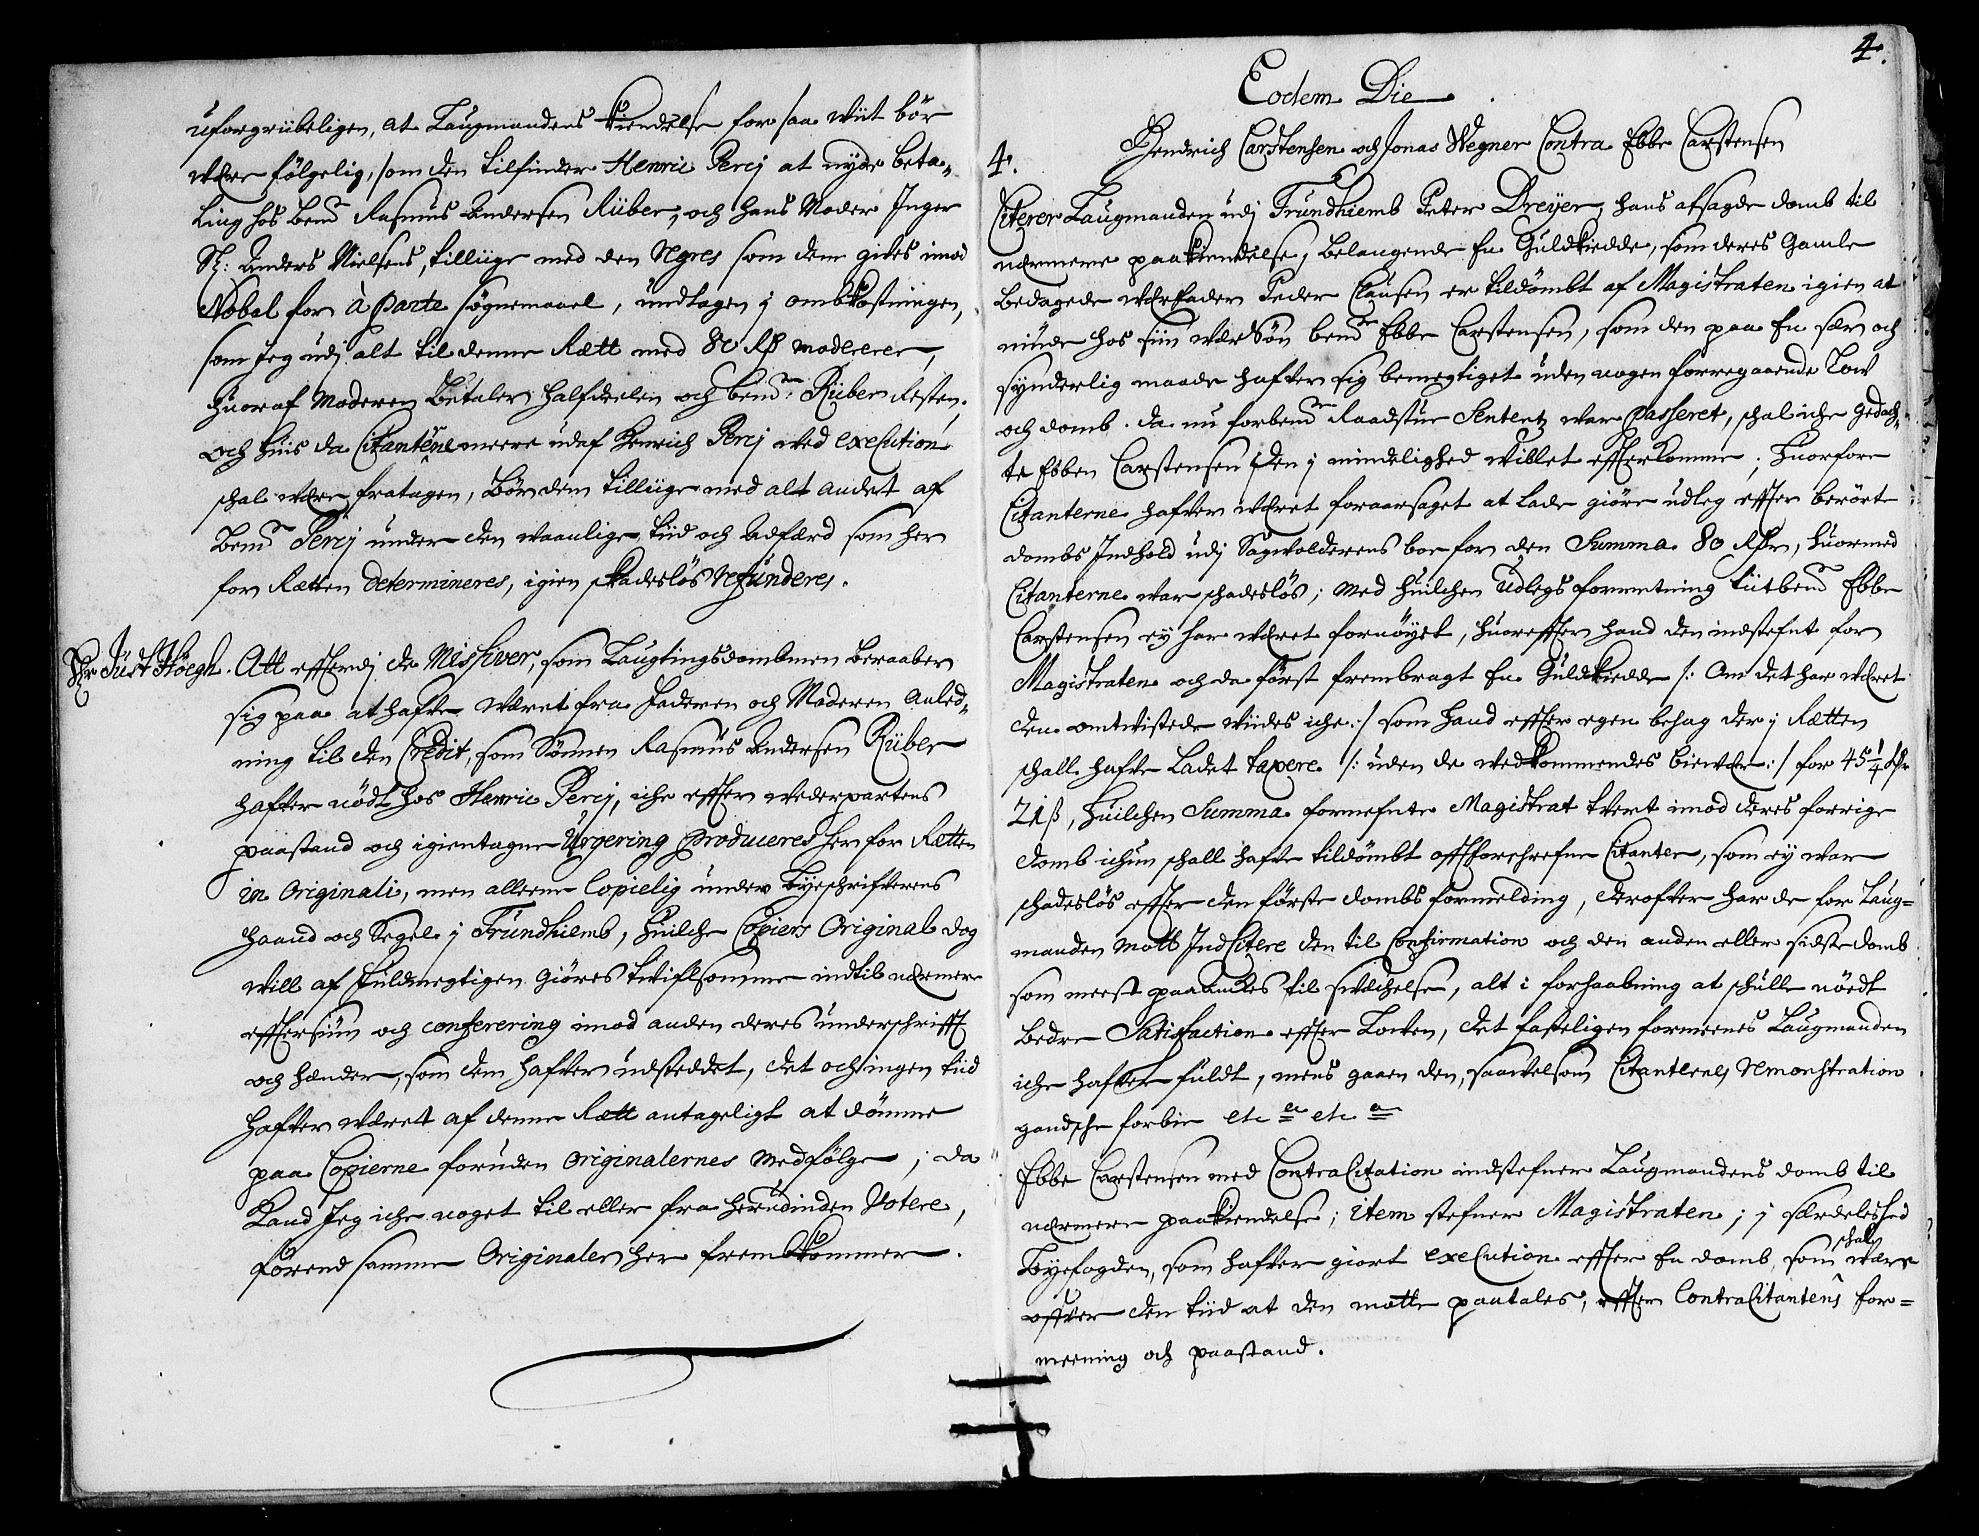 uforgribeligen, at Laugmandens Kiendelse for saa wiit bör
were fölgelig, som den tilfinder Henric Percj at nyde beta-
ling hos bemt Rasmus Andersen Rüber, och hans Moder Inger
Sl: Anders Nielsens, tilliige med den Regres som dem gifves imod
Nobal for à parte sögnemaael, undtagen j ombkostningen,
som jeg udj alt til denne Rætt med 80 Rdr modererer,
huoraf Moderen Betaler halfdeelen och bemte Rüber Resten,
och huis da Citanterne meere udaf Henrich Percj wed execution
schal were fratagen, bör dem tilliige med alt andet af
Bemte Percj under den waanlige tiid och Adfærd som her
for Rætten determineres, igien skadeslös refunderes.
Hr Just Höegh. Att efterdj de Missiver, som Laugtingsdombmen beraaber
sig paa at hafve wæret fra faderen och Moderen Anled-
ning til den Credit, som Sönnen Rasmus Andersen Rüber
hafver nödt hos Henric Percj, iche efter wederpartens
paastand och igientagne Urgering produceres her for Rætten
in Originali, men alleene Copielig under Byeschrifverens
haand och Segel j Trundhiemb, huilche Copiers Original dog
will af fuldmegtigen giöres twiflsomme indtil nærmere
eftersiun och conferering imod anden deres underschrifft
och hænder, som dem hafver udsteddet, det och ingen tiid
hafver wæret af denne Rætt antageligt at dömme
paa Copierne foruden Originalernes medfölge; da
Kand jeg iche noget til eller fra herudinden Votere,
förend samme Originaler her frembkommer.
4.
Eodem Die
Hendrich Carstensen och Jonas Wegner Contra Ebbe Carstensen
4.
Citerer Laugmanden udj Trundhiemb Peter Dreÿer, hans afsagde domb til
nærmere paakiendelse, belangende En Guldkiedde, som deres Gamle
bedagede Werfader Peder Clausen er tildömbt af Magistraten igien at
niude hos siin werSön bemte Ebbe Carstensen, som den paa En sær och
synderlig maade hafver sig bemegtiget uden nogen forregaaende Low
och domb. da nu forbemte Raadstue Sententz war passeret, schal iche gedach-
te Ebben Carstensen den j mindelighed willet efterkomme; huorfore
Citanterne hafver wæret foraarsaget at lade giöre udleg efter berört
dombs Indhold udj Sagwolderens boe for den Summa 80 Rdr, huormed
Citanterne war schadeslös; med huilchen Udlegs forretning titbemte Ebbe
Carstensen ey har wæret fornöyet, huorefter hand den indstefnt for
Magistraten och da först frembragt En Guldkiedde /: Om det har wæret
den omtwistede wiides iche :/ som hand efter egen behag der j Rætten
schall hafve Ladet taxere /: uden de wedkommendes biewær :/ for 45 1/4 Rdr
21 ß, huilchen Summa fornefnte Magistrat twert imod deres forrige
domb ichun schall hafve tildömbt offtforschrefne Citanter, som ey war
schadeslös efter den förste dombs formelding, derofver har de for Laug-
manden mott Indcitere den til Confirmation och den anden eller sidste domb
som meest paaanckes til swechelse, alt i forhaabning at schulle nöedt
bedre Satisfaction efter Lowen, det fasteligen formeenes Laugmanden
iche hafver fuldt, mens gaaen den, saawelsom Citanternes remonstration
gandsche forbie etc a etc a
Ebbe Carstensen med ContraCitation indstefner Laugmandens domb til
nærmere paakiendelse; item stefner Magistraten; j særdeleshed
Byefogden, som hafver giort execution efter En domb, som schal være
offver den tiid at den motte paatales, efter ContraCitantens for=
meening och paastand.